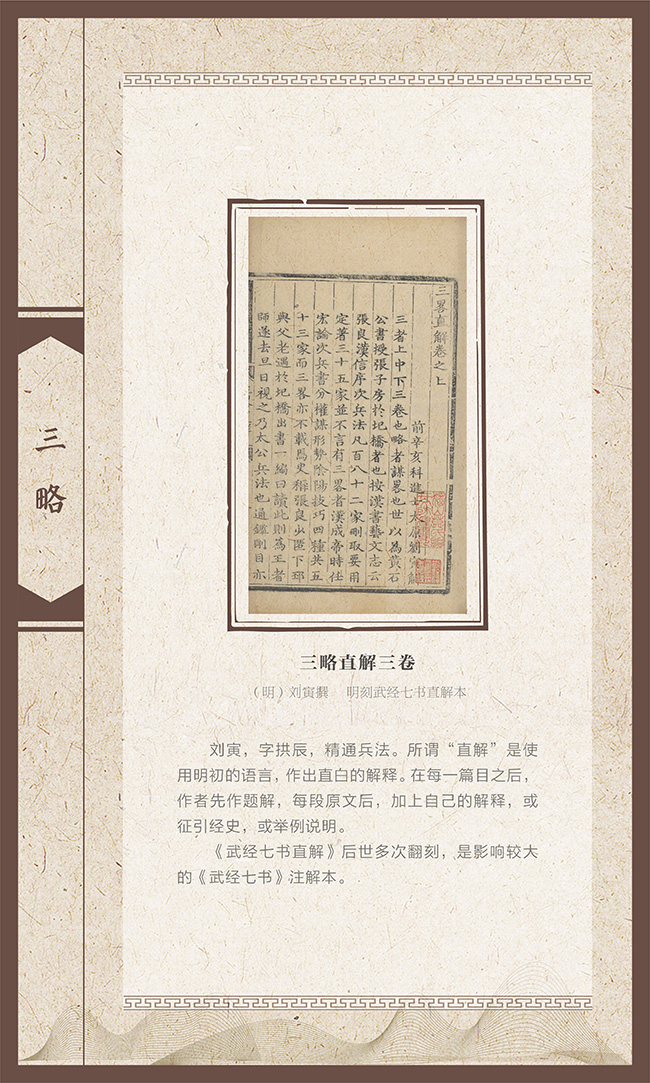 三略
三畧直解卷之上
前辛亥科進士太原劉寅解
三者上中下三卷也略者謀畧也世以為黄石
公書授張子房於圯橋者也按漢書藝文志云
張良漢信序次兵法凡百八十二家刪取要用
定著三十五家並不言有三畧者漢成帝時任
宏論次兵書分權謀形勢陰陽技巧四種共五
十三家而三畧亦不載馬史稱張良少匿下邳
與父老遇於圯橋出書一編曰讀此則為王者
師遂去旦日視之乃太公兵法也通鑑剛目亦
三略直解三卷
（明）刘寅撰 明刻武经七书直解本
刘寅，字拱辰，精通兵法。所谓“直解”是使
用明初的语言，作出直白的解释。在每一篇目之后，
作者先作题解，每段原文后，加上自己的解释，或
征引经史，或举例说明。
《武经七书直解》后世多次翻刻，是影响较大
的《武经七书》注解本。